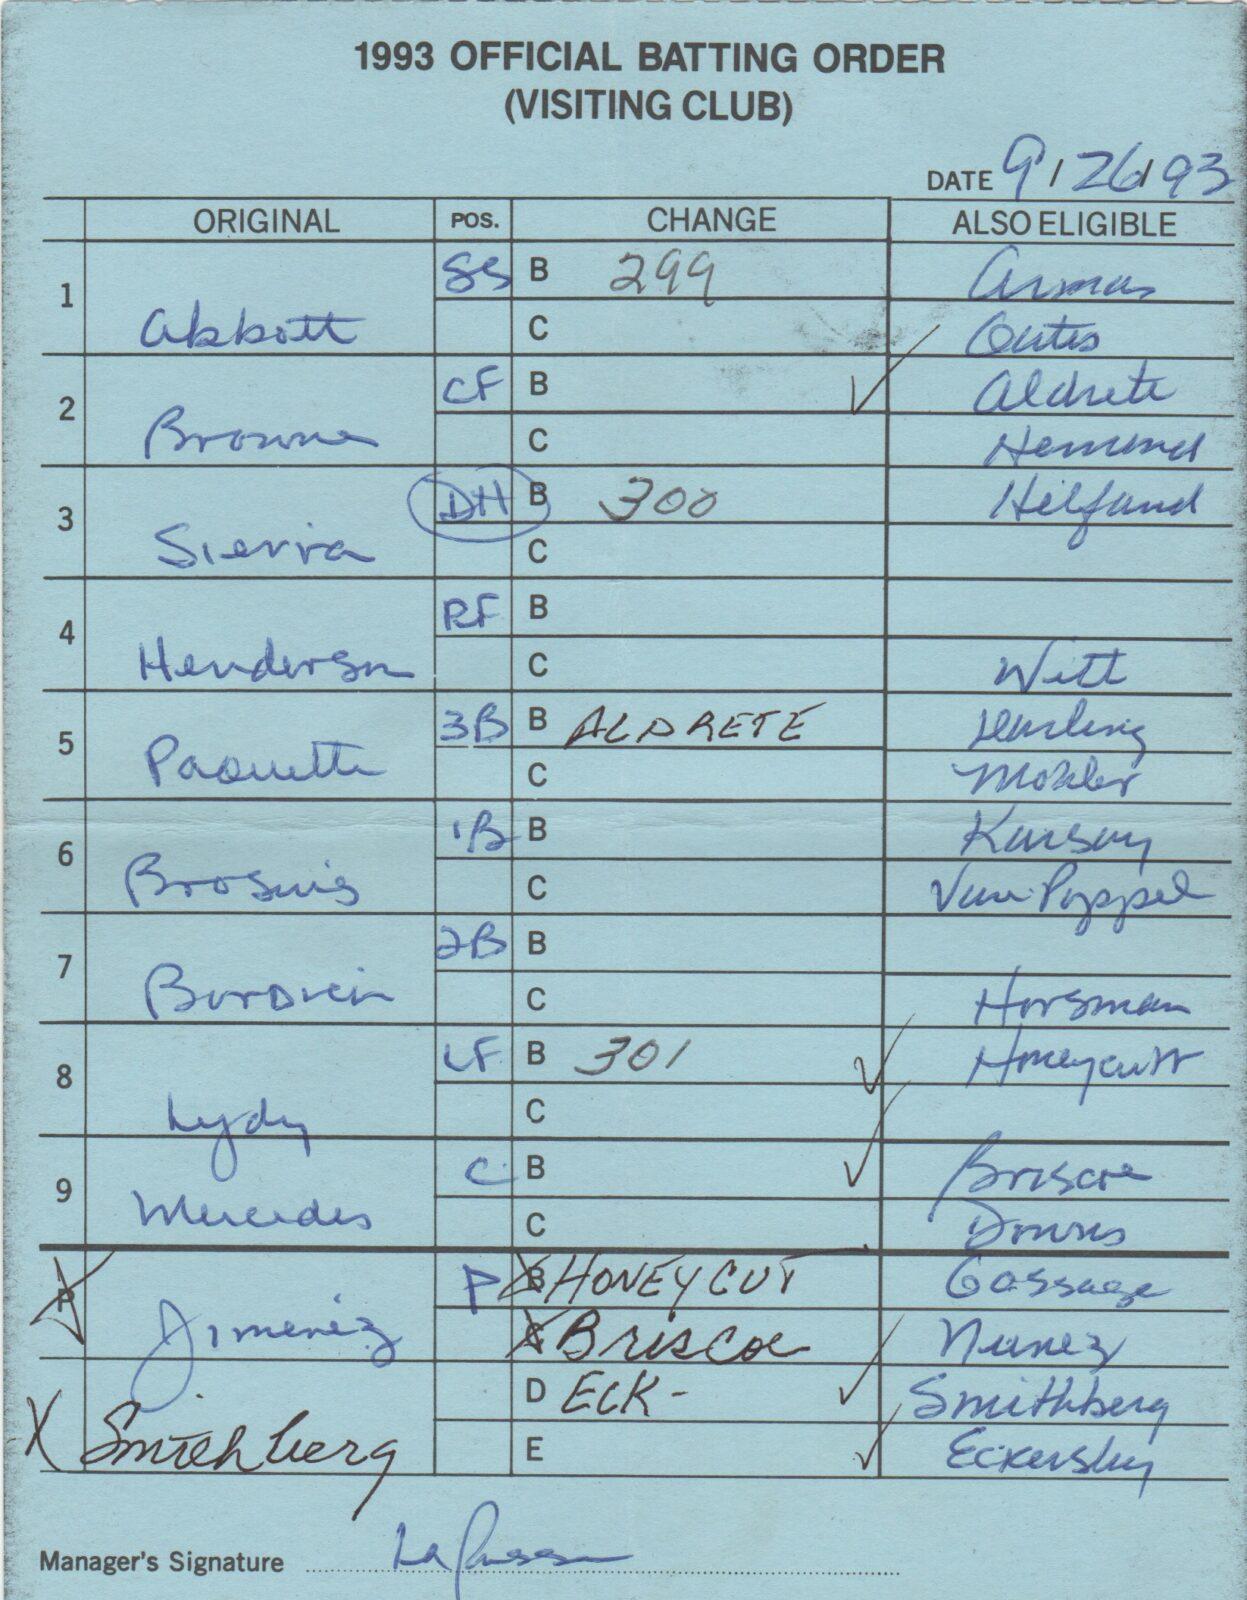 1993 OFFICIAL BATTING ORDER
(VISITING CLUB)
DATE 9/26/93
ORIGINAL POS. CHANGE ALSO ELIGIBLE
1 Abbott SS B 299 Armas
C Gates
2 Browne CF B Aldrete
C Hemond
3 Sierra DH B 300 Hilfand
C
4 Henderson RF B
C Witt
5 Paquette 3B B ALDRETE Darling
C Mohler
6 Brosius 1B B Karsay
C Van Poppel
7 Bordick 2B B
C Horsman
8 Lydy LF B 301 Honeycutt
C
9 Mercedes C B Briscoe
C Downs
P Jimenez P B HONEYCUT Gossage
C Briscoe Nunez
Smithberg D ECK- Smithberg
E Eckersley
Manager's Signature La Russa